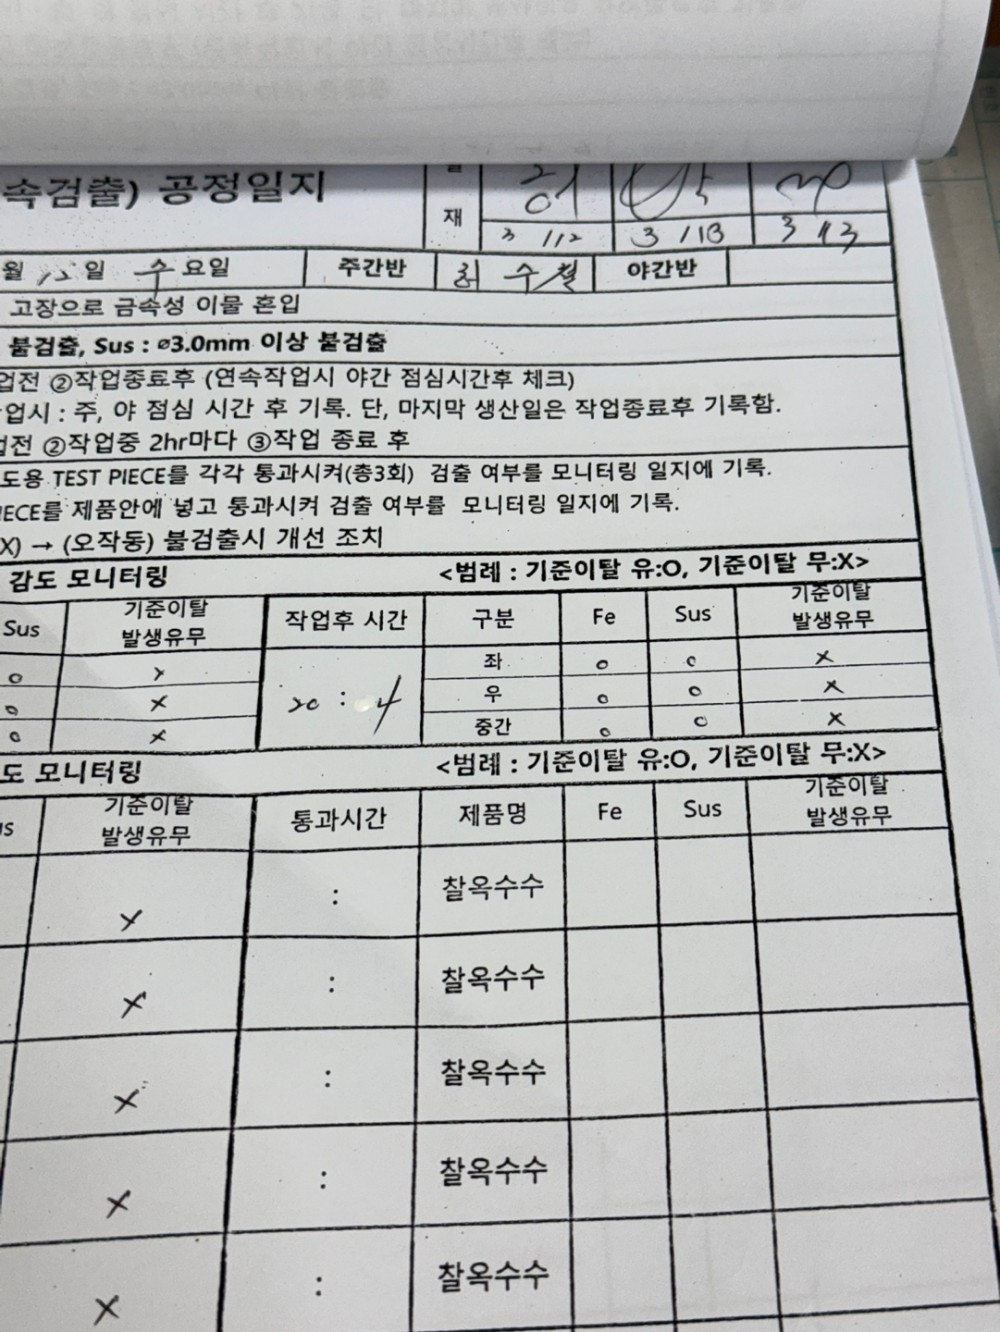 속검출) 공정일지
재
3 /12 3 /13 3 /13
월 12일 수요일 주간반 최수철 야간반
고장으로 금속성 이물 혼입
불검출, Sus : ø3.0mm 이상 불검출
업전 ②작업종료후 (연속작업시 야간 점심시간후 체크)
업시 : 주, 야 점심 시간 후 기록. 단, 마지막 생산일은 작업종료후 기록함.
업전 ②작업중 2hr마다 ③작업 종료 후
도용 TEST PIECE를 각각 통과시켜(총3회) 검출 여부를 모니터링 일지에 기록.
IECE를 제품안에 넣고 통과시켜 검출 여부를 모니터링 일지에 기록.
X) → (오작동) 불검출시 개선 조치
감도 모니터링 <범례 : 기준이탈 유:O, 기준이탈 무:X>
Sus 기준이탈 발생유무 작업후 시간 구분 Fe Sus 기준이탈 발생유무
o X 좌 o o X
o X 20 : 우 o o X
o X 중간 o o X
도 모니터링 <범례 : 기준이탈 유:O, 기준이탈 무:X>
us 기준이탈 발생유무 통과시간 제품명 Fe Sus 기준이탈 발생유무
X : 찰옥수수
X : 찰옥수수
X : 찰옥수수
X : 찰옥수수
X : 찰옥수수